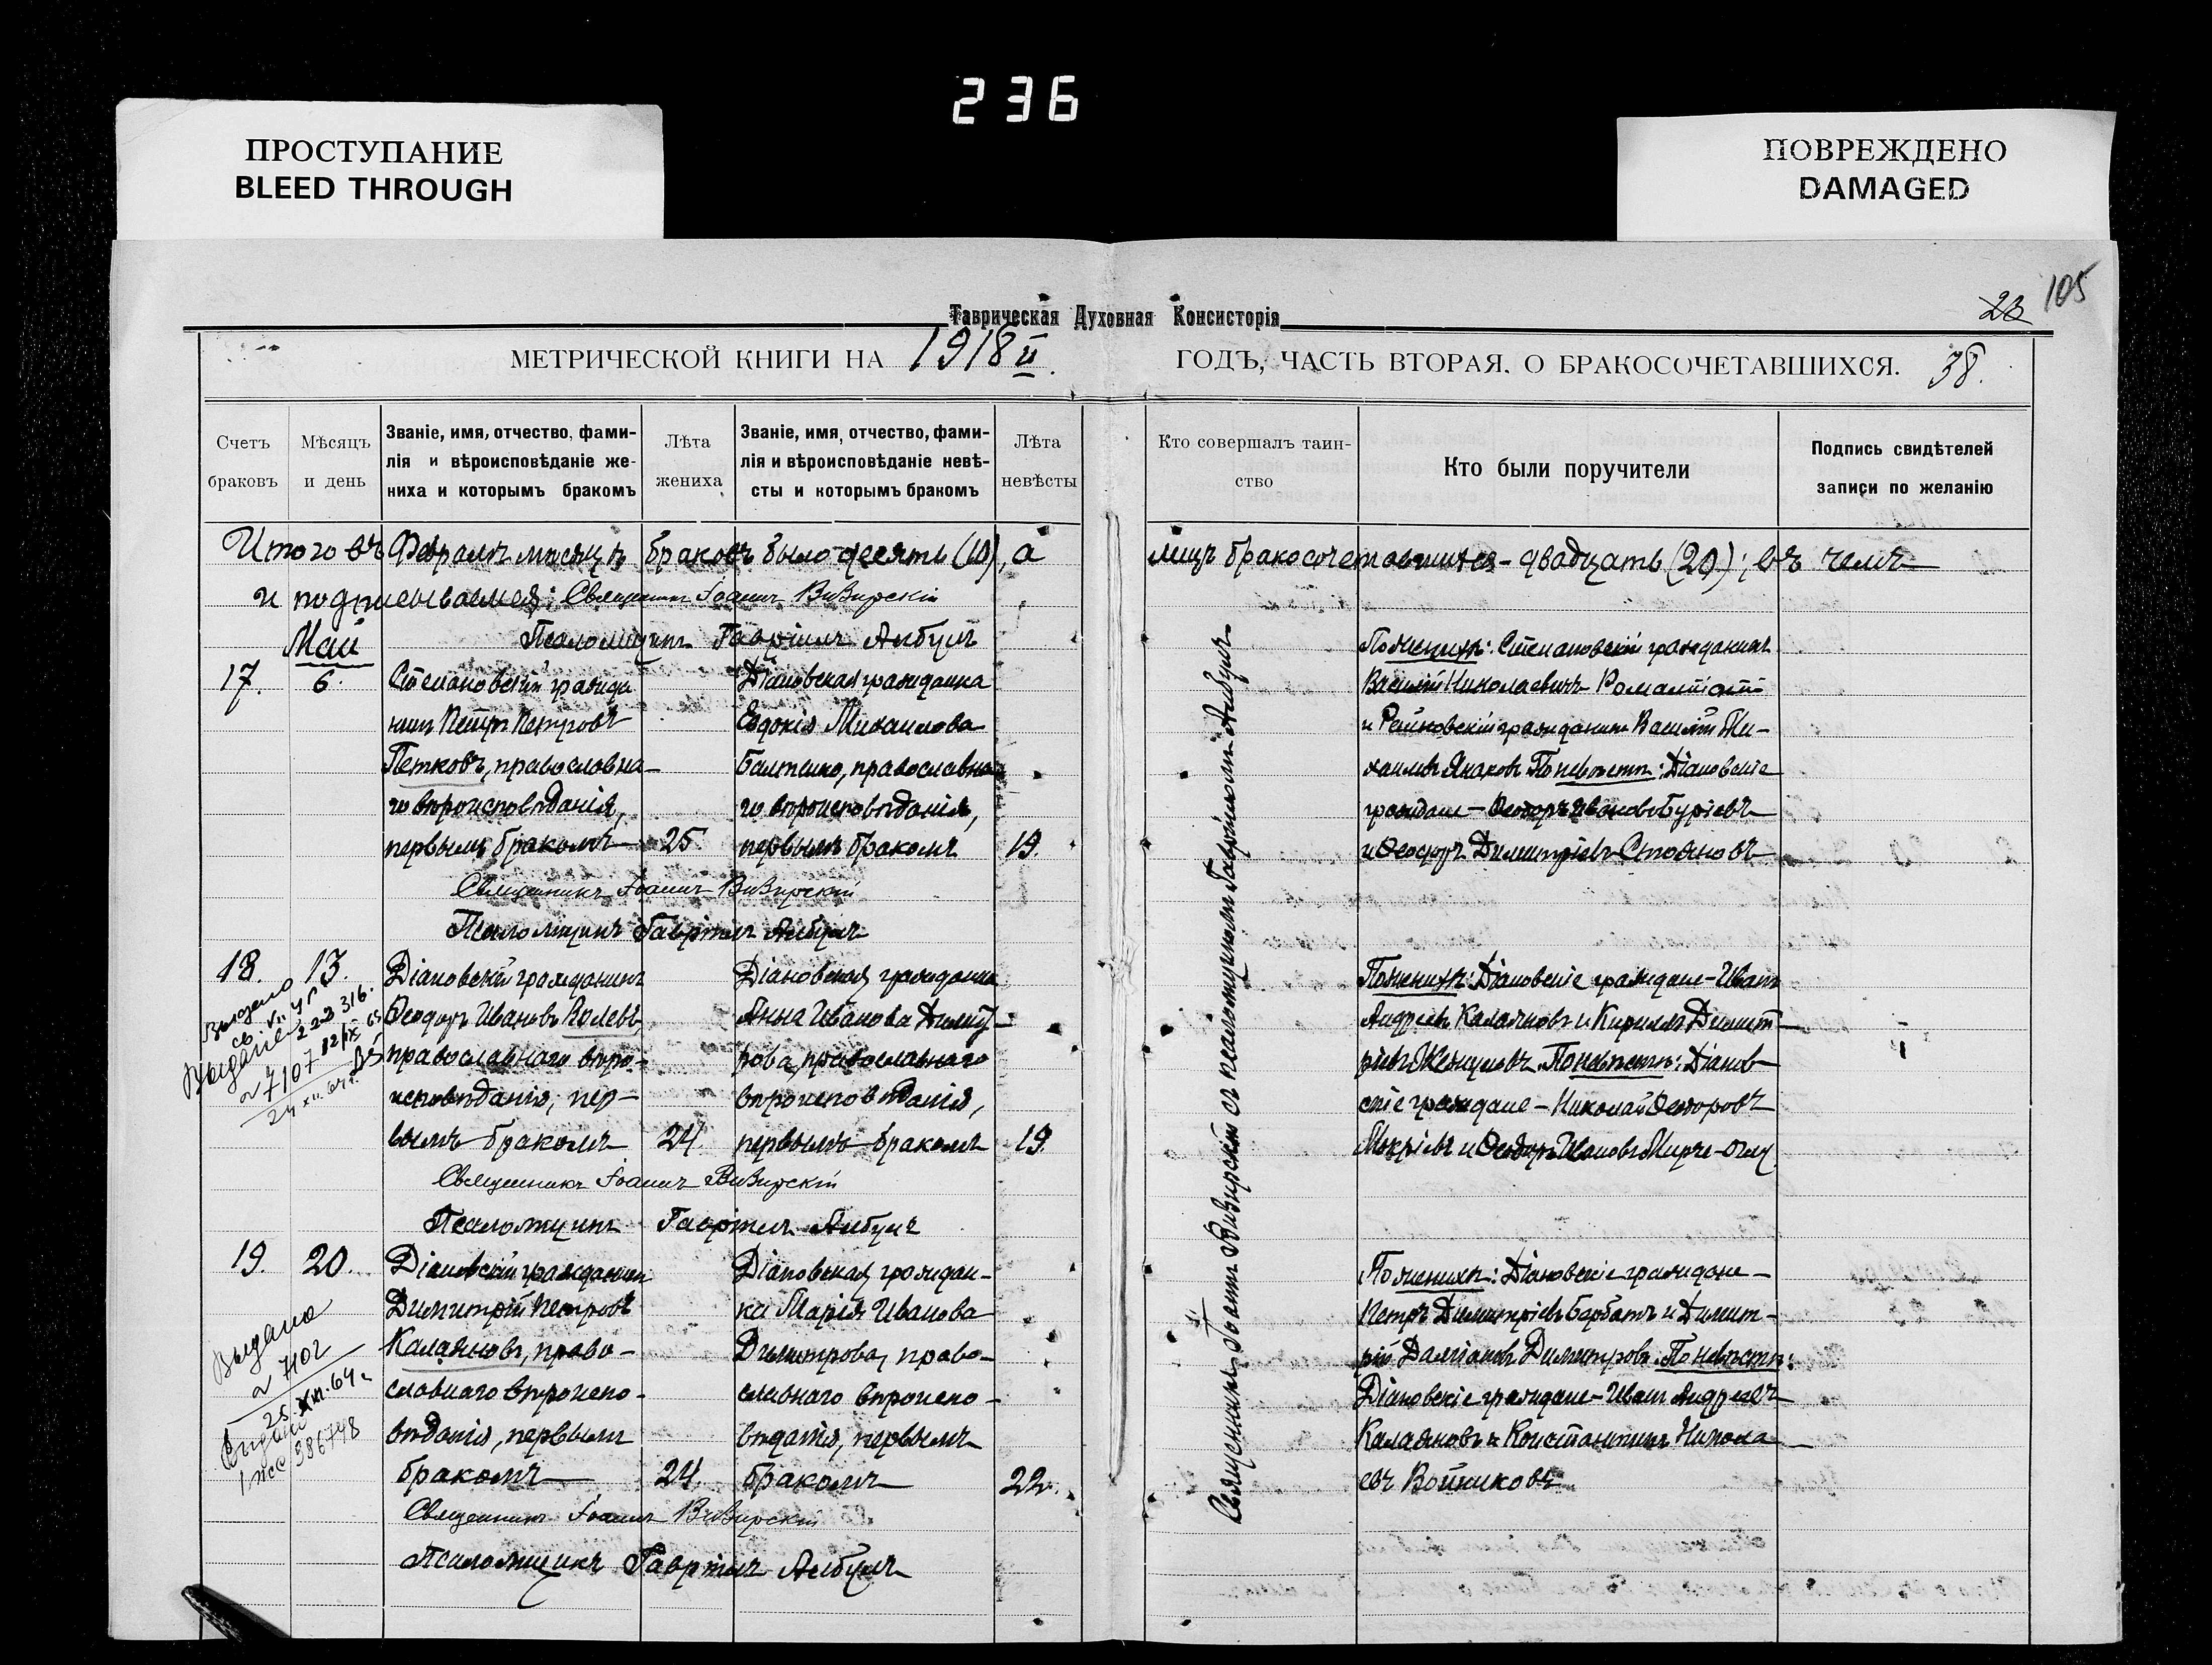 236
ПРОСТУПАНИЕ
BLEED THROUGH
ПОВРЕЖДЕНО
DAMAGED
105
23
Таврическая Духовная Консисторія
МЕТРИЧЕСКОЙ КНИГИ НА 1918 ГОДЪ, ЧАСТЬ ВТОРАЯ, О БРАКОСОЧЕТАВШИХСЯ. 38.
Счетъ браковъ
Мѣсяцъ и день
Званіе, имя, отчество, фами-
лія и вѣроисповѣданіе же-
ниха и которымъ бракомъ
Лѣта жениха
Званіе, имя, отчество, фами-
лія и вѣроисповѣданіе невѣ-
сты и которымъ бракомъ
Лѣта невѣсты
Кто совершалъ таин-
ство
Кто были поручители
Подпись свидѣтелей
записи по желанію
Итого въ Февралѣ мѣсяцѣ браковъ было десять (10), а лицъ бракосочетавшихся - двадцать (20); въ чемъ
и подписываемся: Священникъ Іоаннъ
Псаломщикъ Гавріилъ
Май
17. 6.
Степановскій гражда
нинъ Петръ Петровъ
Петковъ, православна-
го вѣроисповѣданія,
первымъ бракомъ 25.
Діановская гражданка
Евдокія Михаилова
Балтешко, православна
го вѣроисповѣданія,
первымъ бракомъ 19.
По женихѣ: Степановскій гражданинъ
Василій Николаевичъ
и гражданинъ Василій Ми-
хаилъ По невѣстѣ: Діановскіе
граждане - Ѳеодоръ Ивановъ Буріевъ
и Ѳеодоръ Димитріевъ Стояновъ
Священникъ Іоаннъ
Псаломщикъ Гавріилъ
18. 13.
Діановскій гражданинъ
Ѳеодоръ Ивановъ Колевъ
православнаго вѣро-
исповѣданія, пер-
вымъ бракомъ 24.
Діановская гражданка
Анна Иванова Димит-
рова, православнаго
вѣроисповѣданія,
первымъ бракомъ 19.
По женихѣ: Діановскіе граждане - Иванъ
Андреевъ Калаяновъ и Кириллъ Димит-
ріевъ По невѣстѣ: Діанов-
скіе граждане - Николай Ѳеодоровъ
и Ѳеодоръ Ивановъ
Священникъ Іоаннъ
Псаломщикъ Гавріилъ
Выдано
222316.
7107
19. 20.
Діановскій гражданинъ
Димитрій Петровъ
Калаяновъ, право-
славнаго вѣроиспо-
вѣданія, первымъ
бракомъ 24.
Діановская граждан-
ка Марія Иванова
Димитрова, право-
славнаго вѣроиспо-
вѣданія, первымъ
бракомъ 22.
По женихѣ: Діановскіе граждане -
Петръ Димитріевъ Барбатъ и Димит-
рій Даміановъ Димитровъ. По невѣстѣ:
Діановскіе граждане - Иванъ Андреевъ
Калаяновъ и Константинъ Никола-
евъ Войниковъ
Священникъ Іоаннъ
Псаломщикъ Гавріилъ
Выдано
7102
386748
Священникъ Іоаннъ съ псаломщикомъ Гавріиломъ